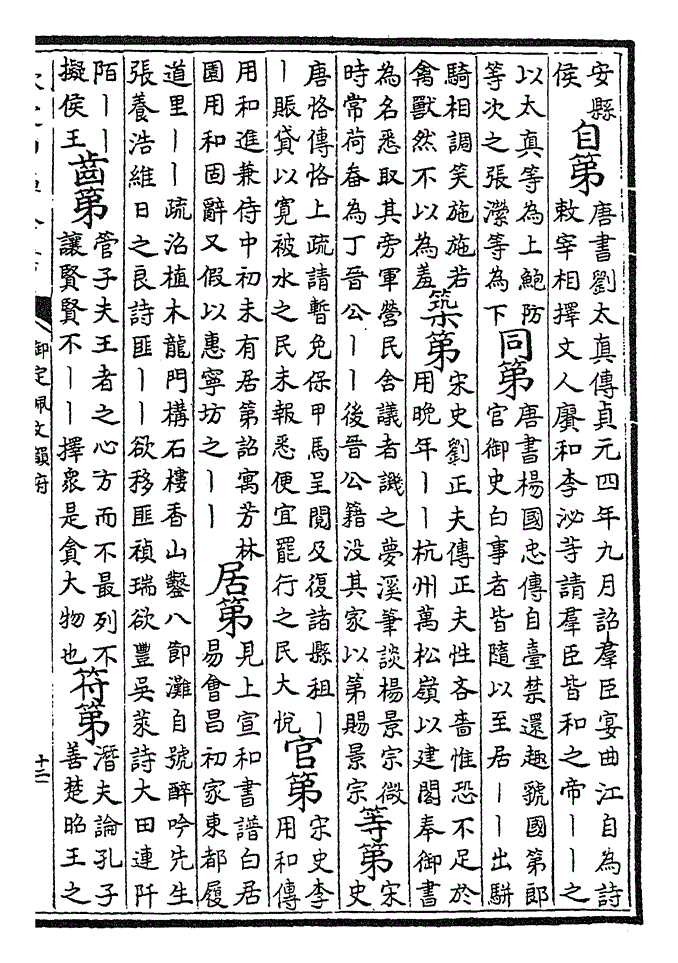 安縣
侯
自第
唐書劉太真傳貞元四年九月詔羣臣宴曲江自為詩
敕宰相擇文人賡和李泌等請羣臣皆和之帝丨丨之
以太真等為上鮑防
等次之張濛等為下
同第
唐書楊國忠傳自臺禁還趣虢國第郎
官御史白事者皆隨以至居丨丨出駢
騎相調笑施施若
禽獸然不以為羞
築第
宋史劉正夫傳正夫性吝嗇惟恐不足於
用晚年丨丨杭州萬松嶺以建閣奉御書
為名悉取其旁軍營民舍議者譏之夢溪筆談楊景宗微
時常荷畚為丁晉公丨丨後晉公籍没其家以第賜景宗
等第
宋
史
唐恪傳恪上疏請暫免保甲馬呈閱及復諸縣租丨
丨賑貸以寬被水之民未報悉便宜罷行之民大悅
官第
宋史李
用和傳
用和進兼侍中初未有居第詔寓芳林
園用和固辭又假以惠寧坊之丨丨
居第
見上宣和書譜白居
易會昌初家東都履
道里丨丨疏沼植木龍門構石樓香山鑿八節灘自號醉吟先生
張養浩維日之良詩匪丨丨欲移匪禎瑞欲豐吳萊詩大田連阡
陌丨丨
擬侯王
齒第
管子夫王者之心方而不最列不
讓賢賢不丨丨擇衆是貪大物也
符第
潛夫論孔子
善楚昭王之
御定佩文韻府